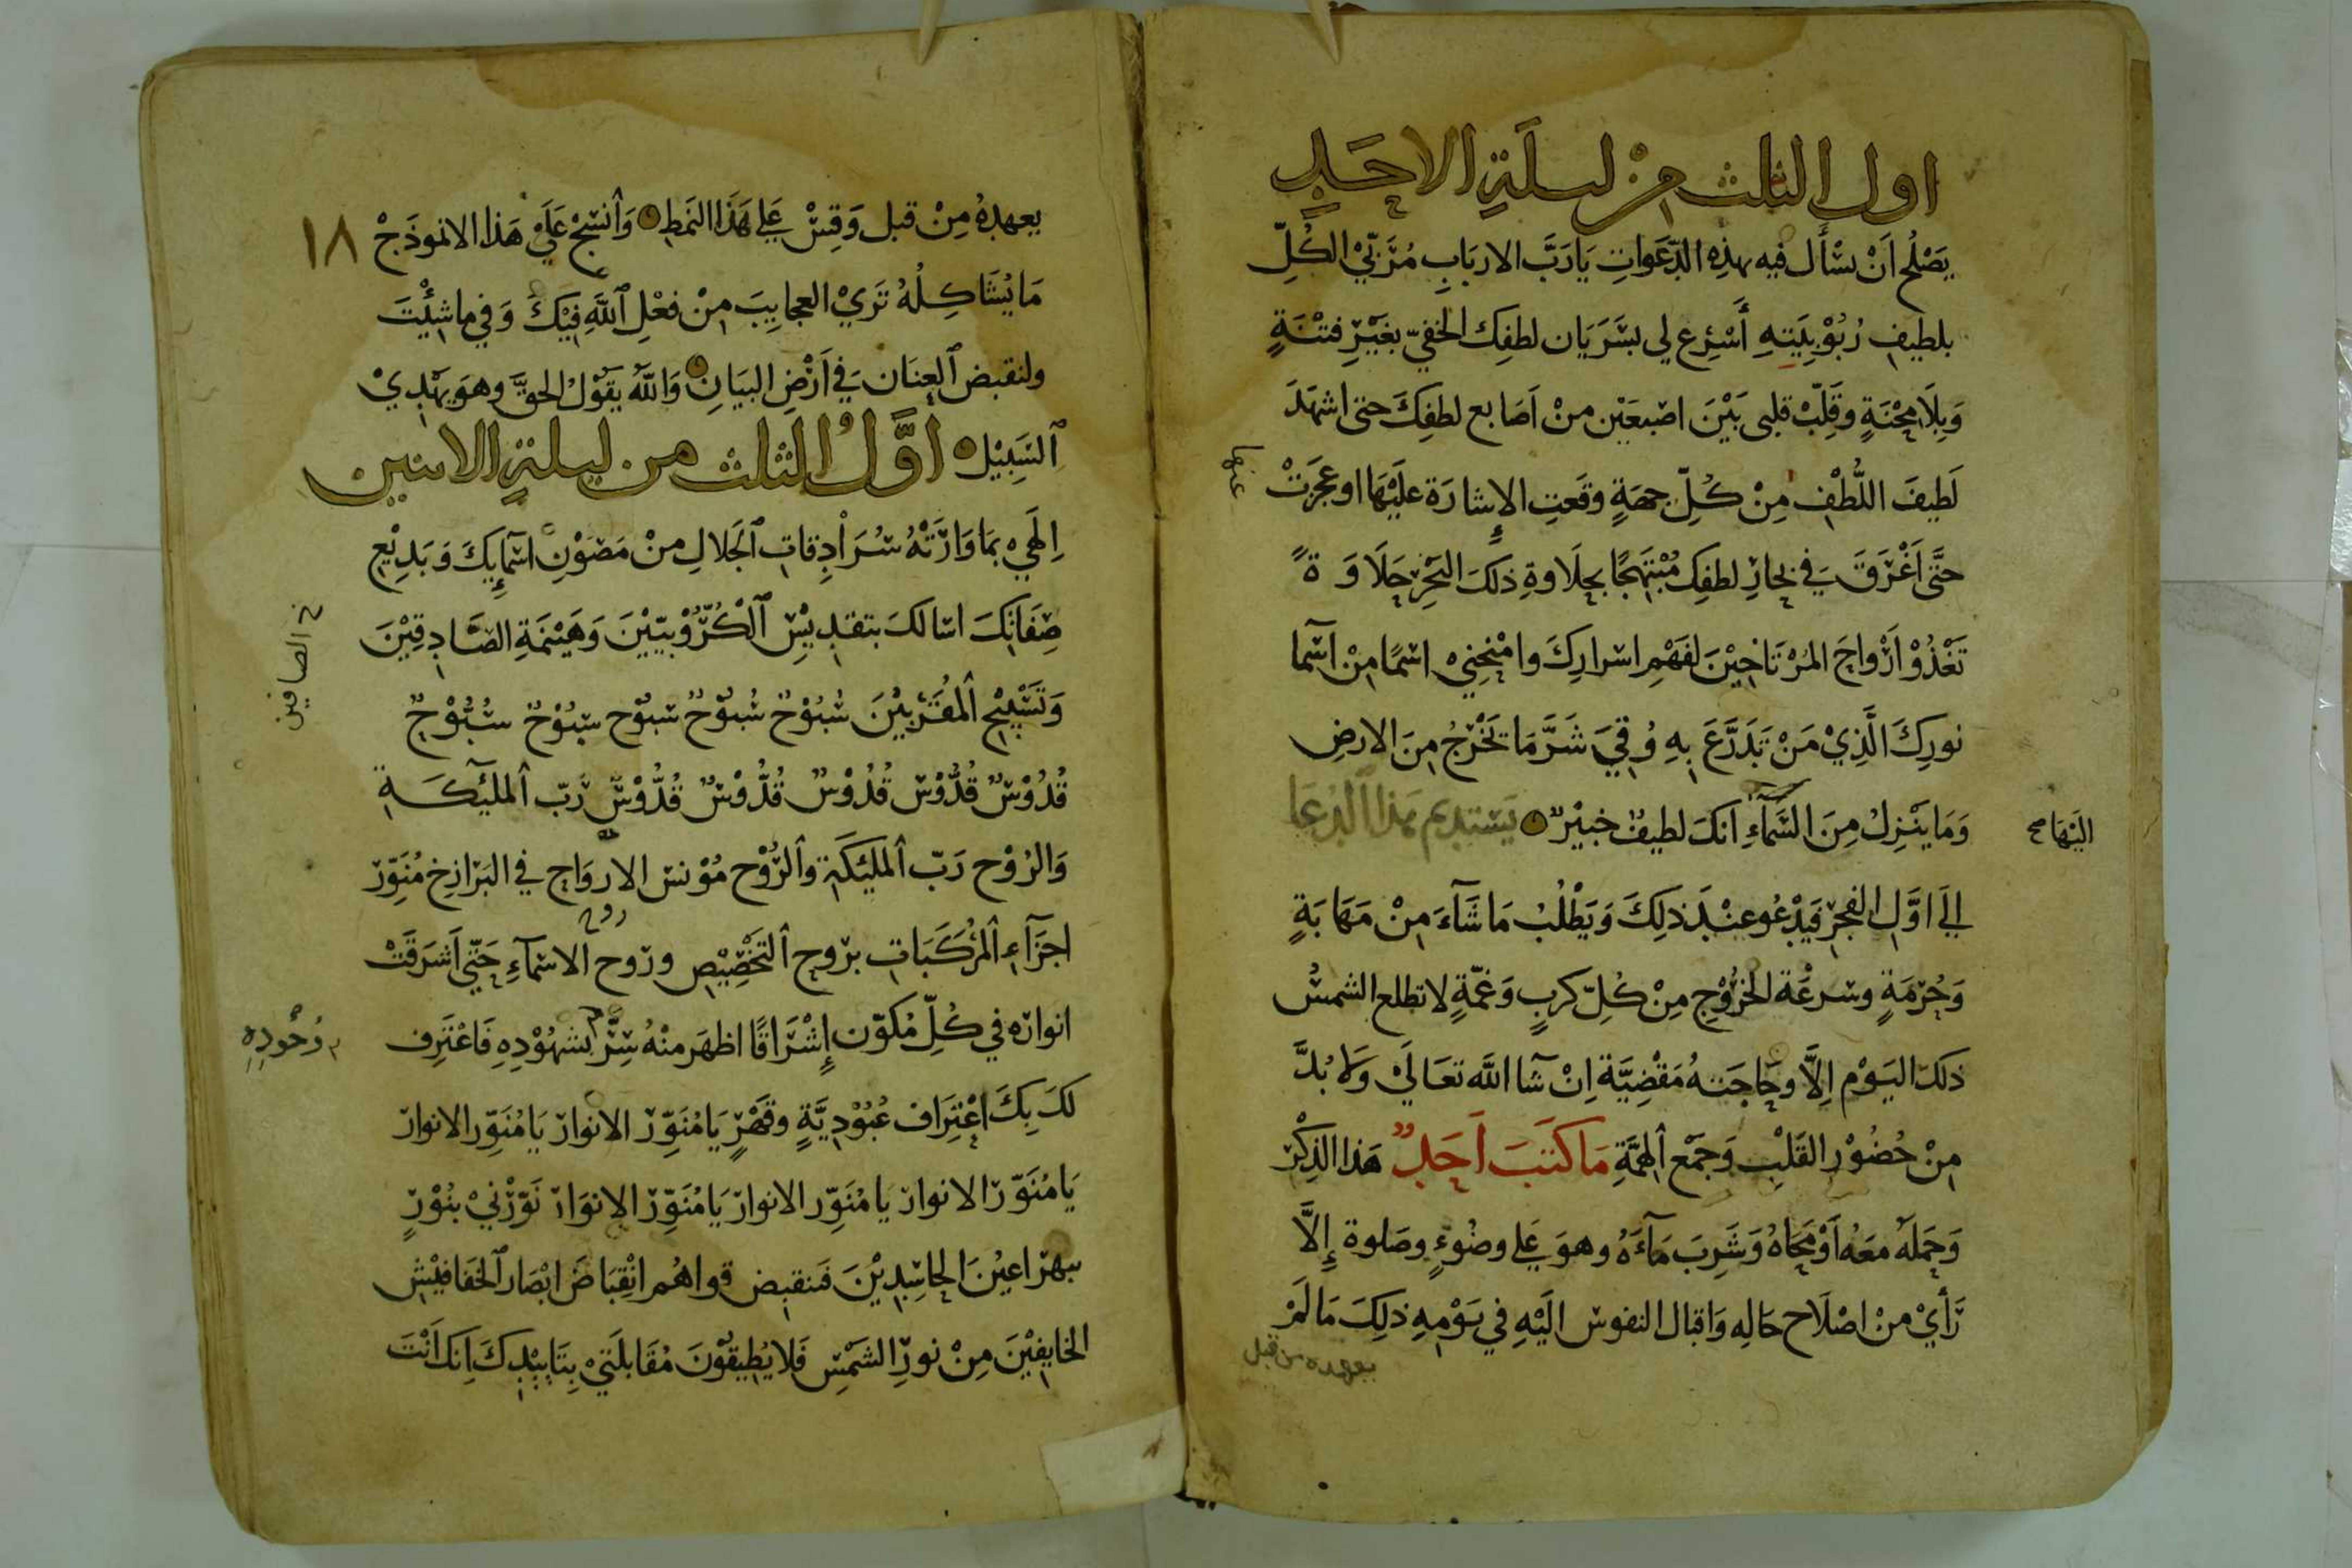 اول الثلث من ليلة الاحد
يَصْلُح اَنْ يسْأَل فيه بهذِه الدَّعَواتِ يَا رَبَّ الاربَابِ مُرَبّيْ الكُلِّ
بلطيفِ رُبُوْبِيَتِهِ أَسْرِع لي بسَرَيَان لطفِك الخفيّ بغَيْرِ فتْنَةٍ
وَبِلَا مِحْنَةٍ وقَلِّبْ قلبى بَيْنَ اصْبعَيْن منْ اَصَابع لطفِكَ حتى اشهَدَ
لَطيفَ اللُّطْفِ مِنْ كُلِّ جهَةٍ وقَعتِ الإِشارَة عليْهَا او عجَزَتْ
عنها
حتَّى اَغْرَقَ في بحَارِ لطفِك مُبْتَهِجًا بحِلَاوةِ ذلكَ البَحْرِ حَلَاوَةً
تَغْذُوْ اَرْواحَ المُرْتَاحِيْنَ لفَهْمِ اسْرارِكَ وامْنِحْنِيْ اسْمًا مِنْ اسْما
نورِكَ الَّذِيْ مَنْ تَدَرَّعَ بِهِ وُقِيَ شَرَّ مَا يَخْرُجُ مِنَ الارضِ
وَمَا يَنْزِلُ مِنَ السَّمآءِ انَكَ لطيفٌ خبيْرٌ يَسْتديم هَذا الدُعَا
اليْهَا صح
الَى اوَّلِ الفجرِ فَيَدْعُو عِنْدَ ذلِكَ وَيَطْلُبُ مَا شَآءَ مِنْ مَهَابَةٍ
وَحُرْمَةٍ وسرعَة الخرُوْجِ مِنْ كُلّ كربٍ وَغمّةٍ لا تطلع الشمسُ
ذلكَ اليَوْم إِلَّا وحَاجَتهُ مَقْضِيَّة اِنْ شآ اللَّه تعَالَيْ وَلَا بُدَّ
مِنْ حُضُوْر القَلْبِ وَجَمْع الهِمَّةِ مَا كَتَبَ اَحَدٌ هَذا الذِكْرَ
وَحَمَلَهُ معَهُ اَوْ مَحَاهُ وَشَرِبَ مَآءَهُ وهوَ عَلى وضُوْءٍ وصَلوة إِلَّا
رَأَيْ منْ اصْلَاح حَالِهِ وَاقبال النفوس الَيْهِ في يَوْمِهِ ذلِكَ مَا لَمْ
يعهده من قبل
١٨
يعهدهُ مِنْ قبل وَقِسْ عَلى هَذَا النَمَطِ وَانْسُجْ عَلَيْ هَذا الانموذَجْ
مَا يُشَاكِلُهُ تَرَيْ العجايِبَ مِنْ فعْلِ اللَّهِ فِيْكَ وَفي ما شئْتَ
ولنقبض العِنَان في اَرْضِ البيَانِ وَاللَّه يقَوْلُ الحقَّ وهوَ يَهْدِيْ
السَبِيْل اوَّلُ الثلث من ليلة الاثنين
اِلَهِيْ بمَا وَارَتْهُ سُرَادِقاتِ الجَلالِ مِنْ مَصَوْنِ اسْمآيِكَ وَبَدِيْعِ
صِفَاتِكَ اسالكَ بتقدِيْسِ الْكُرُّوْبيّيْنَ وَهَيْنَمَةِ الصَّادِقِيْنَ
خ الصافين
وَتَسْبِيْحِ المُقَرَّبيْنَ سُبُوْحٌ سُبوّحٌ سبوّح سبُوْحٌ سُبُّوْحٌ
قُدُوْسٌ قُدُّوْس قُدُوْسٌ قُدُّوْسٌ قُدُّوْسٌ رَبّ الملئِكَةِ
وَالرُوْح رَبّ الملئِكَةِ والرُّوْح مُوْنس الارواحِ في البَرَازخِ مُنَوِّر
اجزَآءِ المُرَكَبَاتِ بروح التَخْصِيْصِ وروح الاسْمآءِ حَتّي اَشرَقَتْ
روح
انوارُه في كُلِّ مُكوّن إِشْرَاقًا اظهَر منْهُ سِرَّ شهُوْدِهِ فَاعْترِف
وُجُودِهِ
لكَ بِكَ اعْتِرَاف عُبُوْدِيَّةٍ وقَهْرٍ يَا مُنَوِّر الانوار يَا مُنَوِّر الانوار
يَا مُنَوّر الانوار يَا مُنَوِّر الانوار يَا مُنَوِّر الانوَار نَوّرْنيْ بنُوْرٍ
يبهر اعيُن الحاسِدِيْنَ فَتنقبِض قواهُم انْقِبَاضَ ابْصَار الخَفَافيْش
الخايفِيْنَ مِنْ نورِ الشَمْسِ فَلا يُطيقُوْنَ مُقَابلَتيْ بِتَايِيْدِكَ اِنكَ اَنْتَ